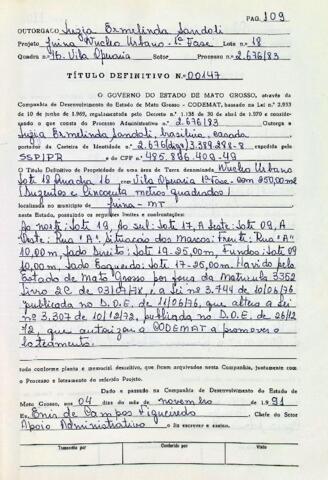 PAG. 109
OUTORGADO Luzia Ermelinda Sandoli
Projeto Juina Nucleo Urbano - 1ª Fase Lote n.º 18
Quadra n.º 16. Vila Operaria Processo 2.676/83
TÍTULO DEFINITIVO N.º 00147
O GOVERNO DO ESTADO DE MATO GROSSO, através da
Companhia de Desenvolvimento do Estado de Mato Grosso - CODEMAT, baseado na Lei n.º 2.933
de 10 de junho de 1969, regulamentada pelo Decreto n.º 1.138 de 30 de abril de 1970 e conside-
rando o que consta do Processo Administrativo n.º 2.676/83 Outorga a
Luzia Ermelinda Sandoli, brasileira, casada
portador da Carteira de Identidade n.º 3.389.298-8 expedida pelo
SSP/PR e do CPF n.º 485.896.409-49
O Título Definitivo de Propriedade de uma área de Terra denominada Nucleo Urbano
Lote 18 Quadra 16 Vila Operaria 1ª Fase com 250,00m2
Duzentos e Cincoenta metros quadrados
localizada no município de Juina - MT
neste Estado, possuindo os seguintes limites e confrontações:
Ao norte: Lote 19, ao sul: Lote 17, A Leste: Lote 09, A
Oeste: Rua "A". Situação dos Marcos: Frente: Rua "A"
10,00m, Lado Direito: Lote 19-25,00m, Fundos: Lote 09
10,00m, Lado Esquerdo: Lote 17-25,00m. Havido pelo
Estado de Mato Grosso por força da Matricula 3352
Livro 2C de 03/07/78, e Lei nº 3.744 de 10/06/76
publicada no D.O.E. de 11/06/76, que altera a Lei
nº 3.307 de 10/12/72, publicada no D.O.E. de 26/12
72, que autorizara a CODEMAT a promover o
loteamento.
tudo conforme planta e memorial descritivo, que ficam arquivados nesta Companhia, juntamente com
o Processo e loteamento do referido Projeto.
Dado e passado na Companhia de Desenvolvimento do Estado de
Mato Grosso, aos 04 dias do mês de novembro de 1.991
Eu, Enir de Campos Figueiredo Chefe do Setor
Apoio Administrativo o fiz escrever e assino.
Transcrito por Conferido por Visto